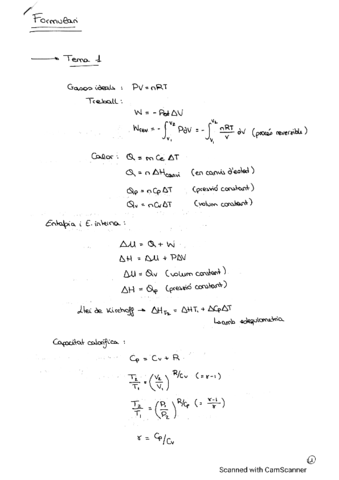 Formulari
Tema 1
Gasos ideals : PV = nRT
Treball :
W = - Pext ΔV
Wrev = - ∫_{V₁}^{V₂} PdV = - ∫_{V₁}^{V₂} nRT/V dV (procés reversible)
Calor : Q = m Ce ΔT
Q = n ΔHcanvi (en canvis d'estat)
Qp = n Cp ΔT (pressió constant)
Qv = n Cv ΔT (volum constant)
Entalpia i E. interna :
ΔU = Q + W
ΔH = ΔU + PΔV
ΔU = Qv (volum constant)
ΔH = Qp (pressió constant)
Llei de Kirchoff → ΔH_{T₂} = ΔH_{T₁} + ΔCpΔT
amb estequiometria
Capacitat calorífica :
Cp = Cv + R
T₂/T₁ = (V₂/V₁)^{R/Cv} (= γ-1)
T₂/T₁ = (P₁/P₂)^{R/Cp} (= γ-1/γ)
γ = Cp/Cv
Scanned with CamScanner